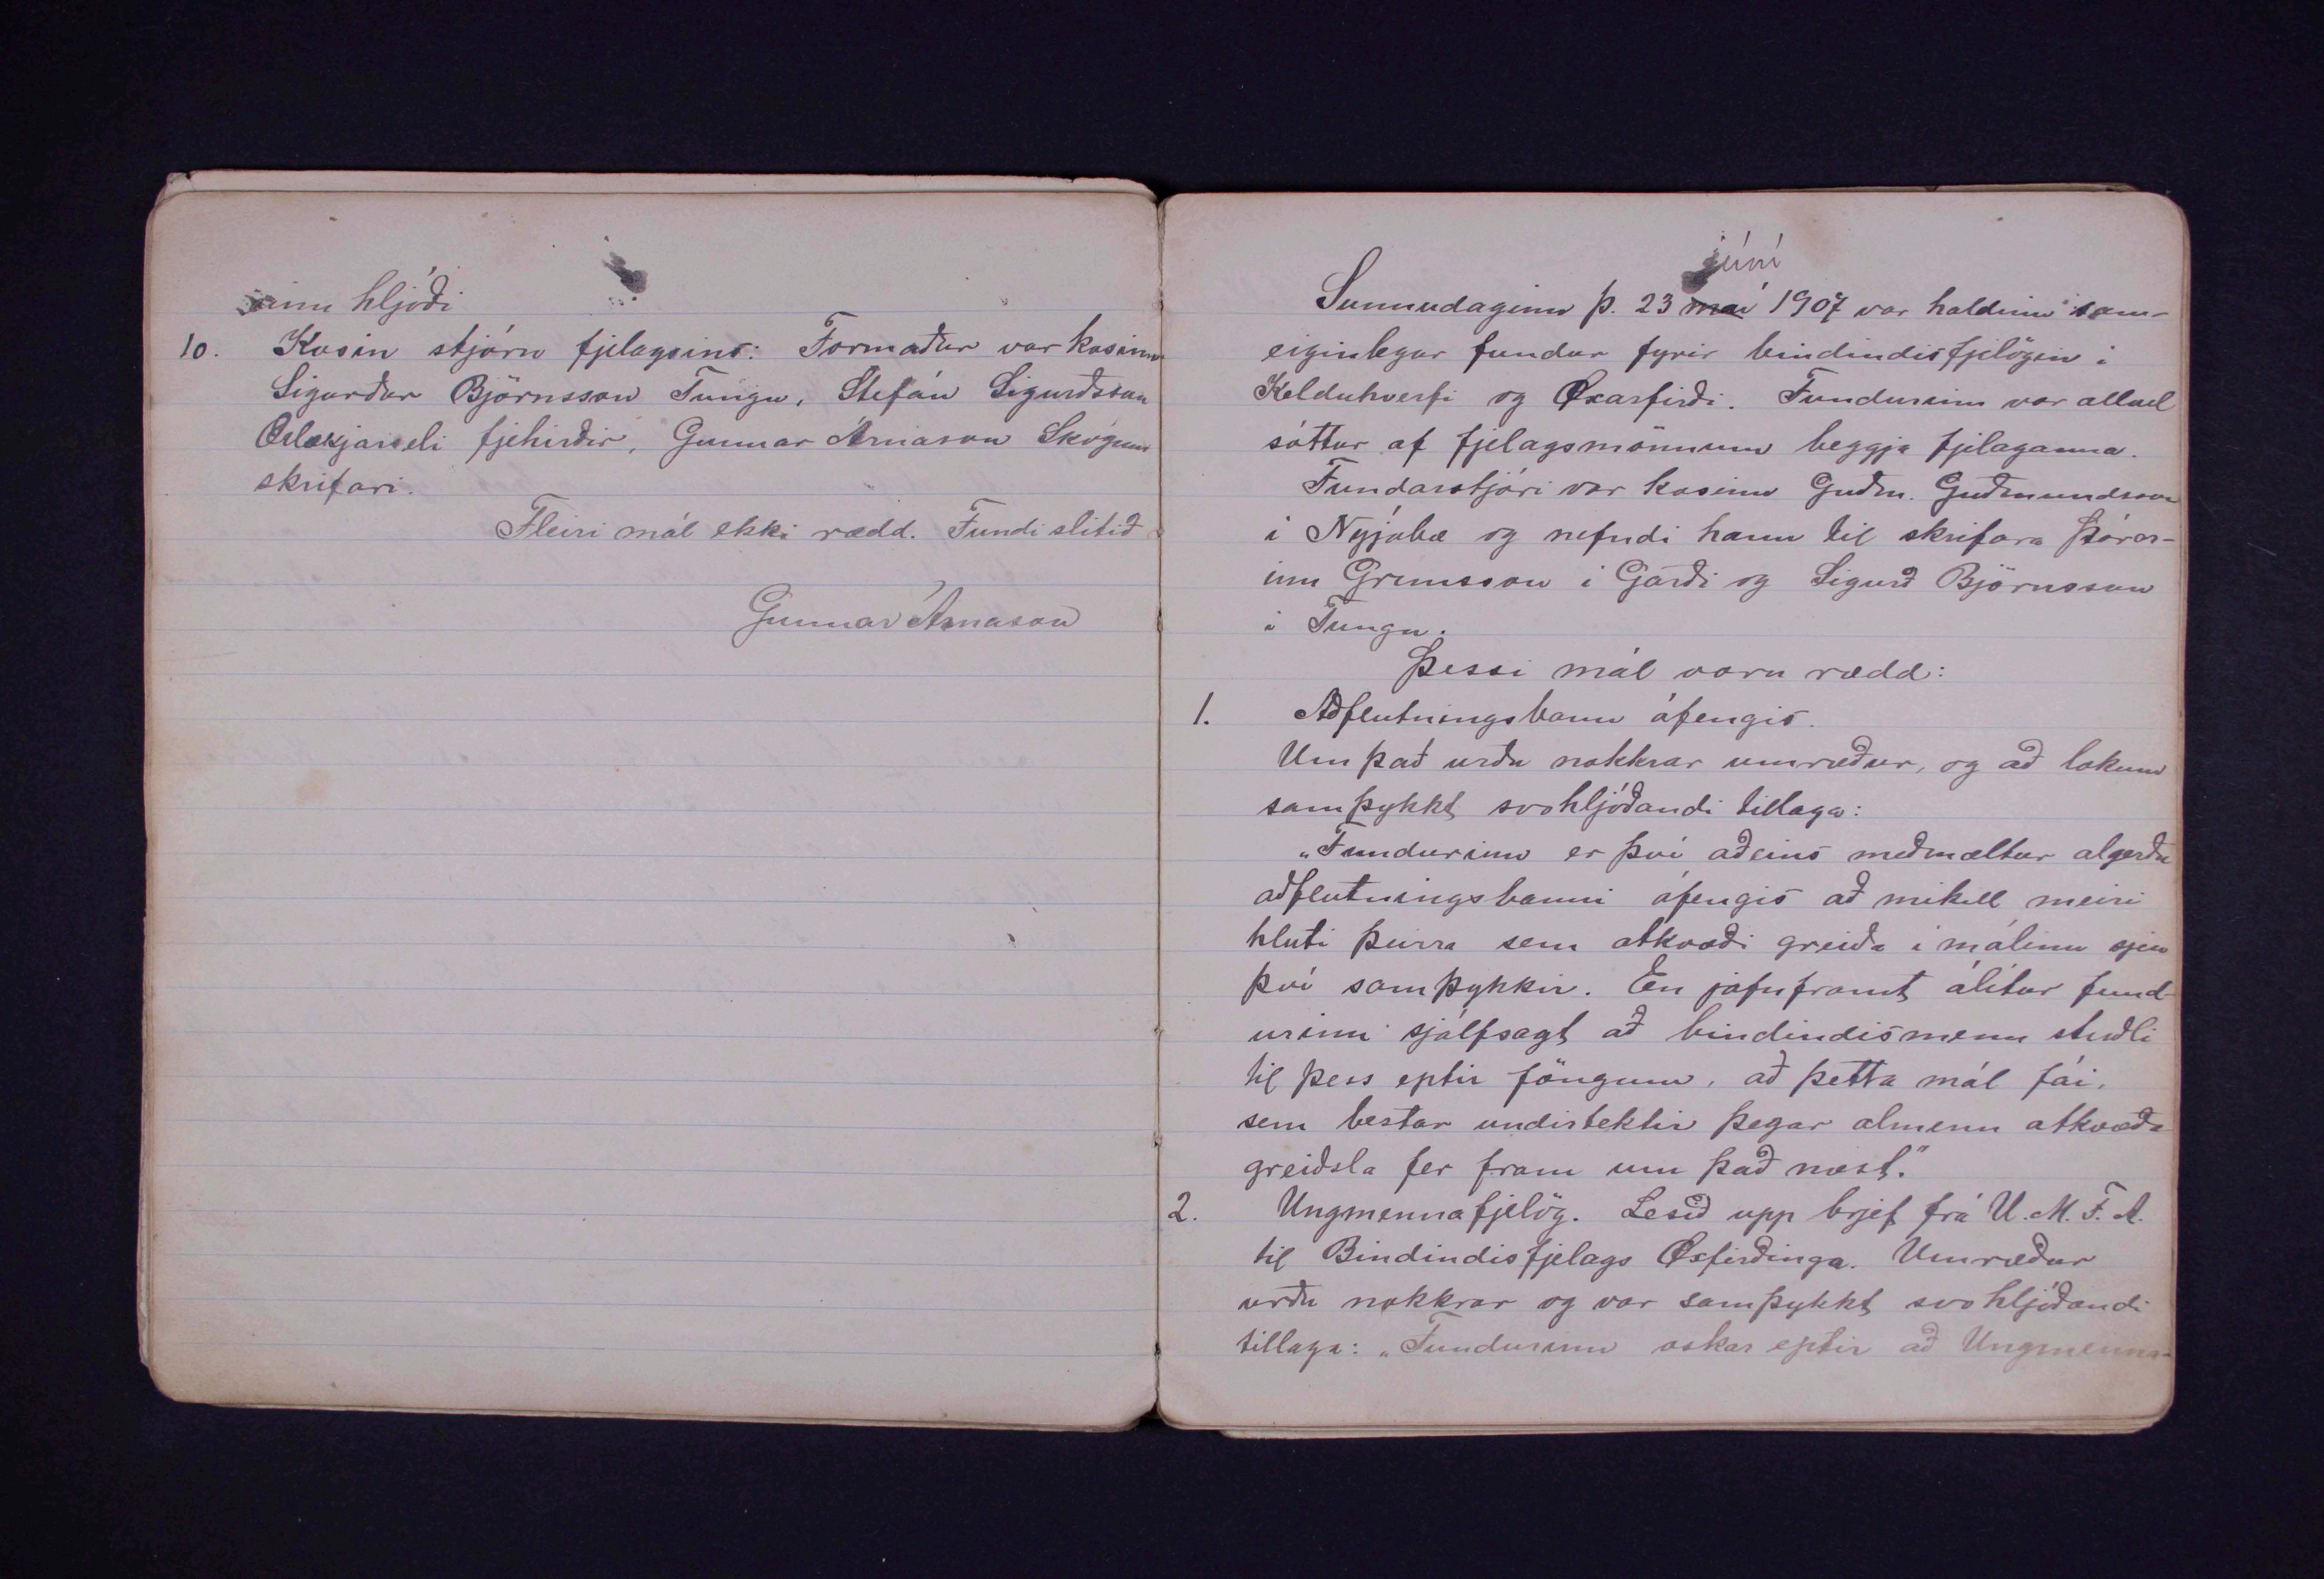 einu hljóði
10. Kosin stjórn fjelagsins: Formaður var kosinn
Sigurður Björnsson Tungu, Stefán Sigurðsson
Ærlækjarseli fjehirðir, Gunnar Árnason Skógum
skrifari.
Fleiri mál ekki rædd. Fundi slitið
Gunnar Árnason
júní
Sunnudaginn þ. 23 maí 1907 var haldinn sam-
eiginlegur fundur fyrir bindindisfjelögin í
Kelduhverfi og Öxarfirði. Fundurinn var allvel
sóttur af fjelagsmönnum beggja fjelaganna.
Fundarstjóri var kosinn Guðm. Guðmundsson
í Nýjabæ og nefndi hann til skrifara Þórar-
inn Grímsson í Garði og Sigurð Björnsson
í Tungu.
Þessi mál voru rædd:
1. Aðflutningsbann áfengis.
Um það urðu nokkrar umræður, og að lokum
samþykkt svohljóðandi tillaga:
„Fundurinn er því aðeins meðmæltur algerðu
aðflutningsbanni áfengis að mikill meiri
hluti þeirra sem atkvæði greiða í málinu sjeu
því samþykkir. En jafnframt álítur fund-
urinn sjálfsagt að bindindismenn stuðli
til þess eptir föngum, að þetta mál fái,
sem bestar undirtektir þegar almenn atkvæða
greiðsla fer fram um það næst."
2. Ungmennafjelög. Lesið upp brjef frá U.M.F.A.
til Bindindisfjelags Öxfirðinga. Umræður
urðu nokkrar og var samþykkt svohljóðandi
tillaga: „Fundurinn óskar eptir að Ungmenna-